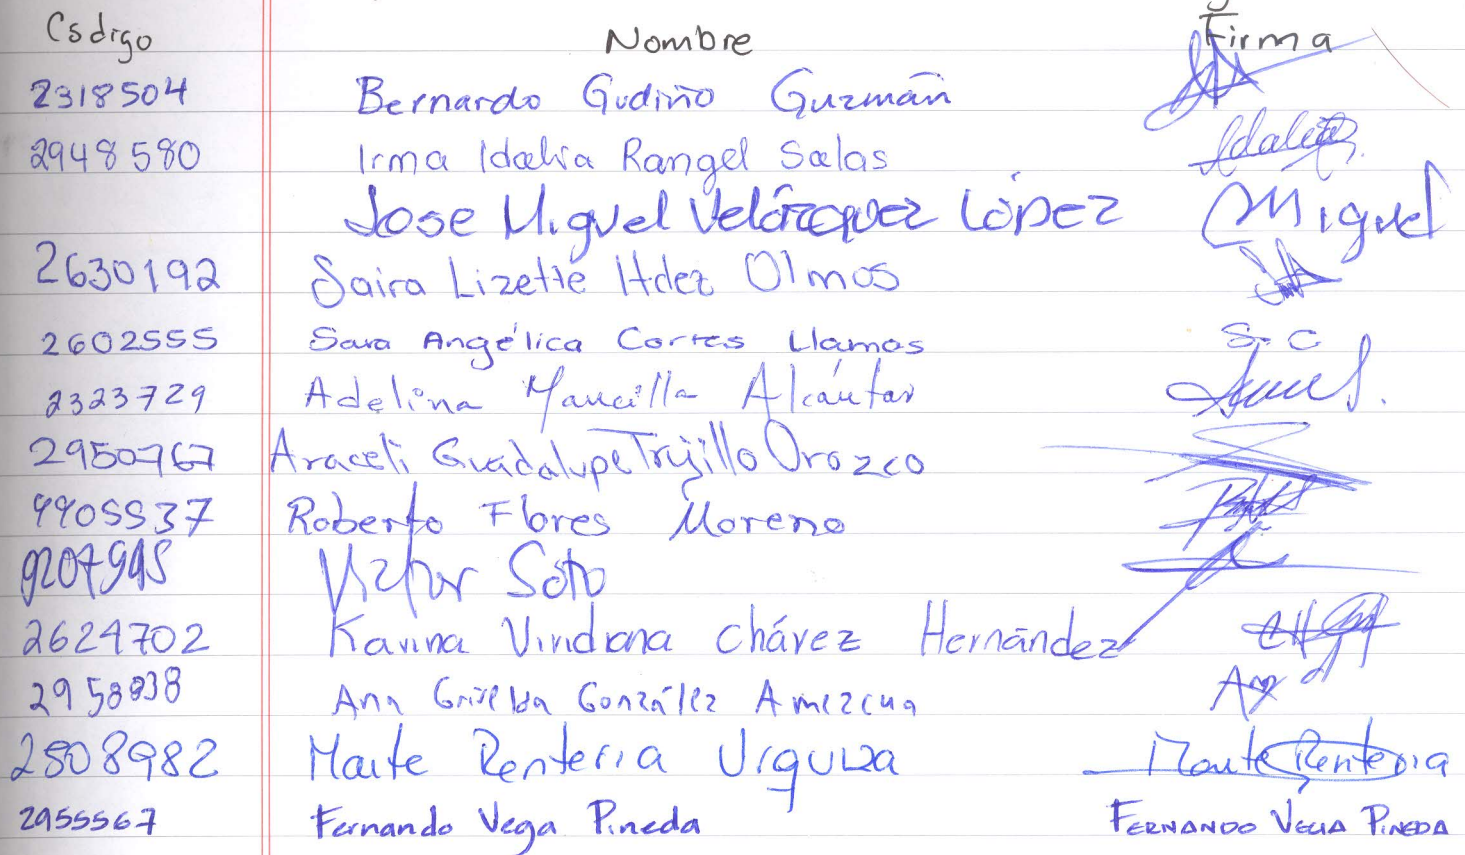 Codigo Nombre Firma
2318504 Bernardo Gudiño Guzmán
2948580 Irma Idalia Rangel Salas Idalia
Jose Miguel Velázquez López Miguel
2630192 Saira Lizette Hdez Olmos
2602555 Sara Angélica Cortes Llamas S. C
2323729 Adelina Mancilla Alcántar
2950767 Araceli Guadalupe Trujillo Orozco
9905537 Roberto Flores Moreno
Victor Soto
2624702 Karina Viridiana Chávez Hernández
Ana Griselda González Amezcua
2508982 Maite Renteria Urquiza Maite Renteria
2955567 Fernando Vega Pineda FERNANDO VEGA PINEDA